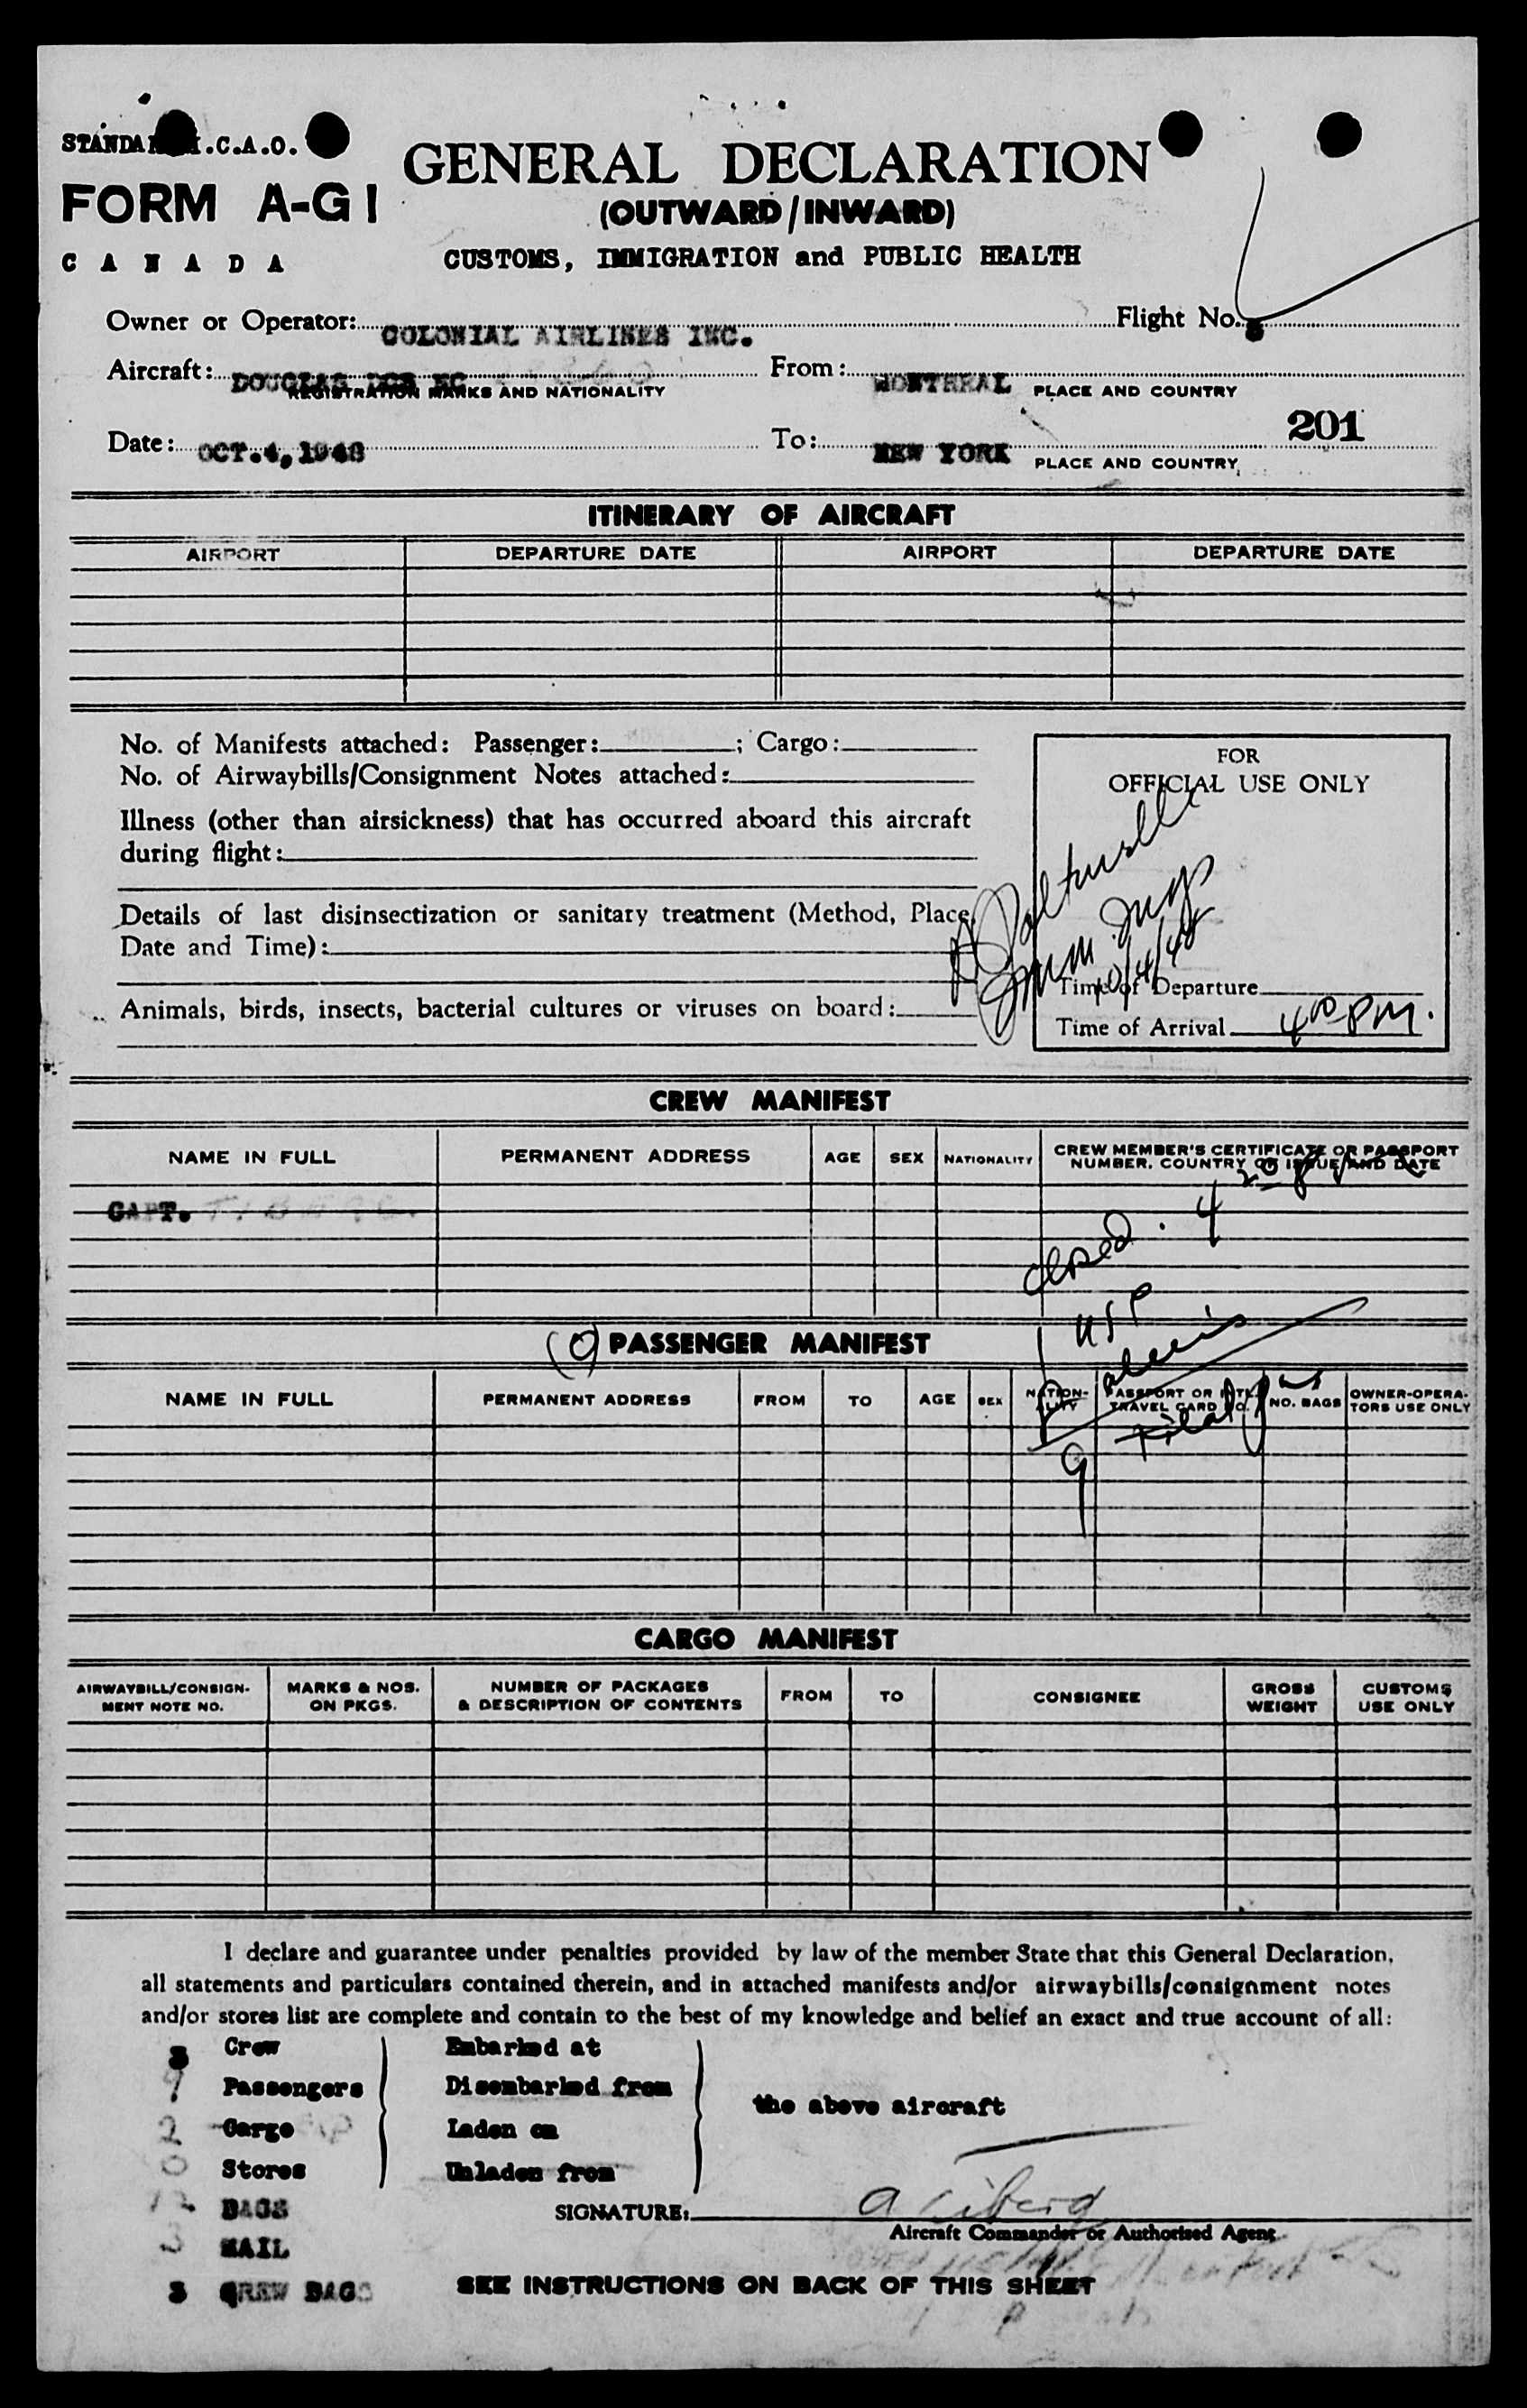 STANDA .C.A.O.
GENERAL DECLARATION
FORM A-G1
(OUTWARD/INWARD)
CANADA
CUSTOMS, IMMIGRATION and PUBLIC HEALTH
Owner or Operator: COLONIAL AIRLINES INC. Flight No.
Aircraft: DOUGLAS From: MONTREAL
REGISTRATION MARKS AND NATIONALITY PLACE AND COUNTRY
201
Date: OCT.4, 1948 To: NEW YORK
PLACE AND COUNTRY
ITINERARY OF AIRCRAFT
AIRPORT DEPARTURE DATE AIRPORT DEPARTURE DATE
No. of Manifests attached: Passenger: ; Cargo:
No. of Airwaybills/Consignment Notes attached:
Illness (other than airsickness) that has occurred aboard this aircraft
during flight:
Details of last disinsectization or sanitary treatment (Method, Place,
Date and Time):
Animals, birds, insects, bacterial cultures or viruses on board:
FOR
OFFICIAL USE ONLY
10/4/48
Time of Departure
Time of Arrival 4 00 PM.
CREW MANIFEST
NAME IN FULL PERMANENT ADDRESS AGE SEX NATIONALITY CREW MEMBER'S CERTIFICATE OR PASSPORT
NUMBER, COUNTRY OF ISSUE AND DATE
CAPT.
closed. 4 20
(9) PASSENGER MANIFEST
aliens
NAME IN FULL PERMANENT ADDRESS FROM TO AGE SEX NATION-
ALITY PASSPORT OR INTL.
TRAVEL CARD NO. NO. BAGS OWNER-OPERA-
TORS USE ONLY
9 Total
CARGO MANIFEST
AIRWAYBILL/CONSIGN-
MENT NOTE NO. MARKS & NOS.
ON PKGS. NUMBER OF PACKAGES
& DESCRIPTION OF CONTENTS FROM TO CONSIGNEE GROSS
WEIGHT CUSTOMS
USE ONLY
I declare and guarantee under penalties provided by law of the member State that this General Declaration,
all statements and particulars contained therein, and in attached manifests and/or airwaybills/consignment notes
and/or stores list are complete and contain to the best of my knowledge and belief an exact and true account of all:
3 Crew Embarked at
9 Passengers Disembarked from
the above aircraft
2 Cargo Laden on
0 Stores Unladen from
12 BAGS
SIGNATURE:
Aircraft Commander or Authorised Agent
MAIL
3 CREW BAGS
SEE INSTRUCTIONS ON BACK OF THIS SHEET